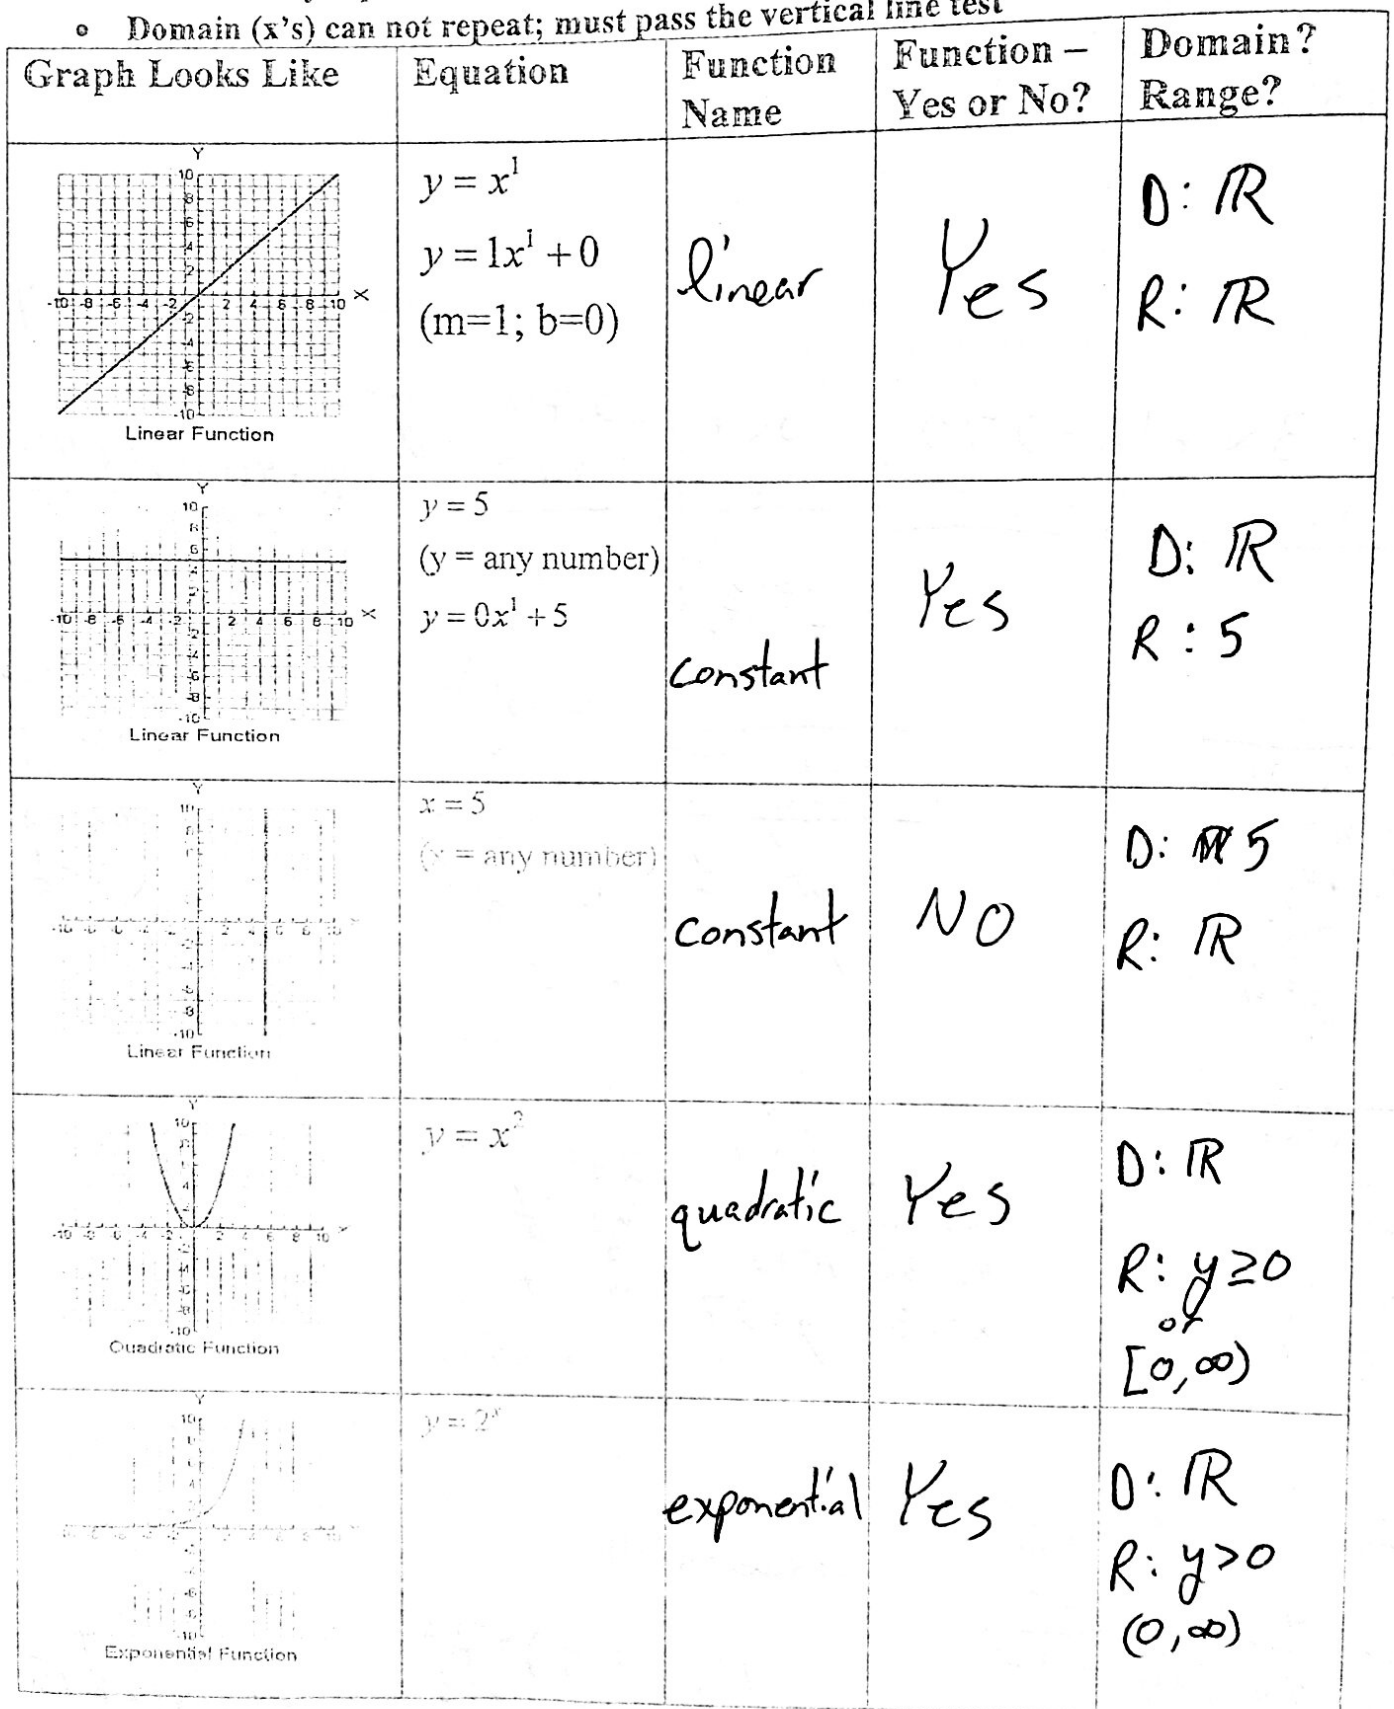 Domain (x's) can not repeat; must pass the vertical line test
Graph Looks Like
Equation
Function
Name
Function –
Yes or No?
Domain?
Range?
Y
10
8
6
4
2
-10 -8 -6 -4 -2 2 4 6 8 10 X
-2
-6
-8
-10
Linear Function
y = x¹
y = 1x¹ + 0
(m=1; b=0)
linear
Yes
D: ℝ
R: ℝ
Y
10
8
6
4
-10 -8 -6 -4 -2 2 4 6 8 10 X
-2
-4
-6
-8
-10
Linear Function
y = 5
(y = any number)
y = 0x¹ + 5
constant
Yes
D: ℝ
R: 5
Y
10
-8
-10
Linear Function
x = 5
(x = any number)
constant
NO
D: 5
R: ℝ
Y
10
-10 -8 -6 -4 -2 2 4 6 8 10 X
-10
Quadratic Function
y = x²
quadratic
Yes
D: ℝ
R: y≥0
or
[0,∞)
Y
10
-10
Exponential Function
y = 2ˣ
exponential
Yes
D: ℝ
R: y>0
(0,∞)